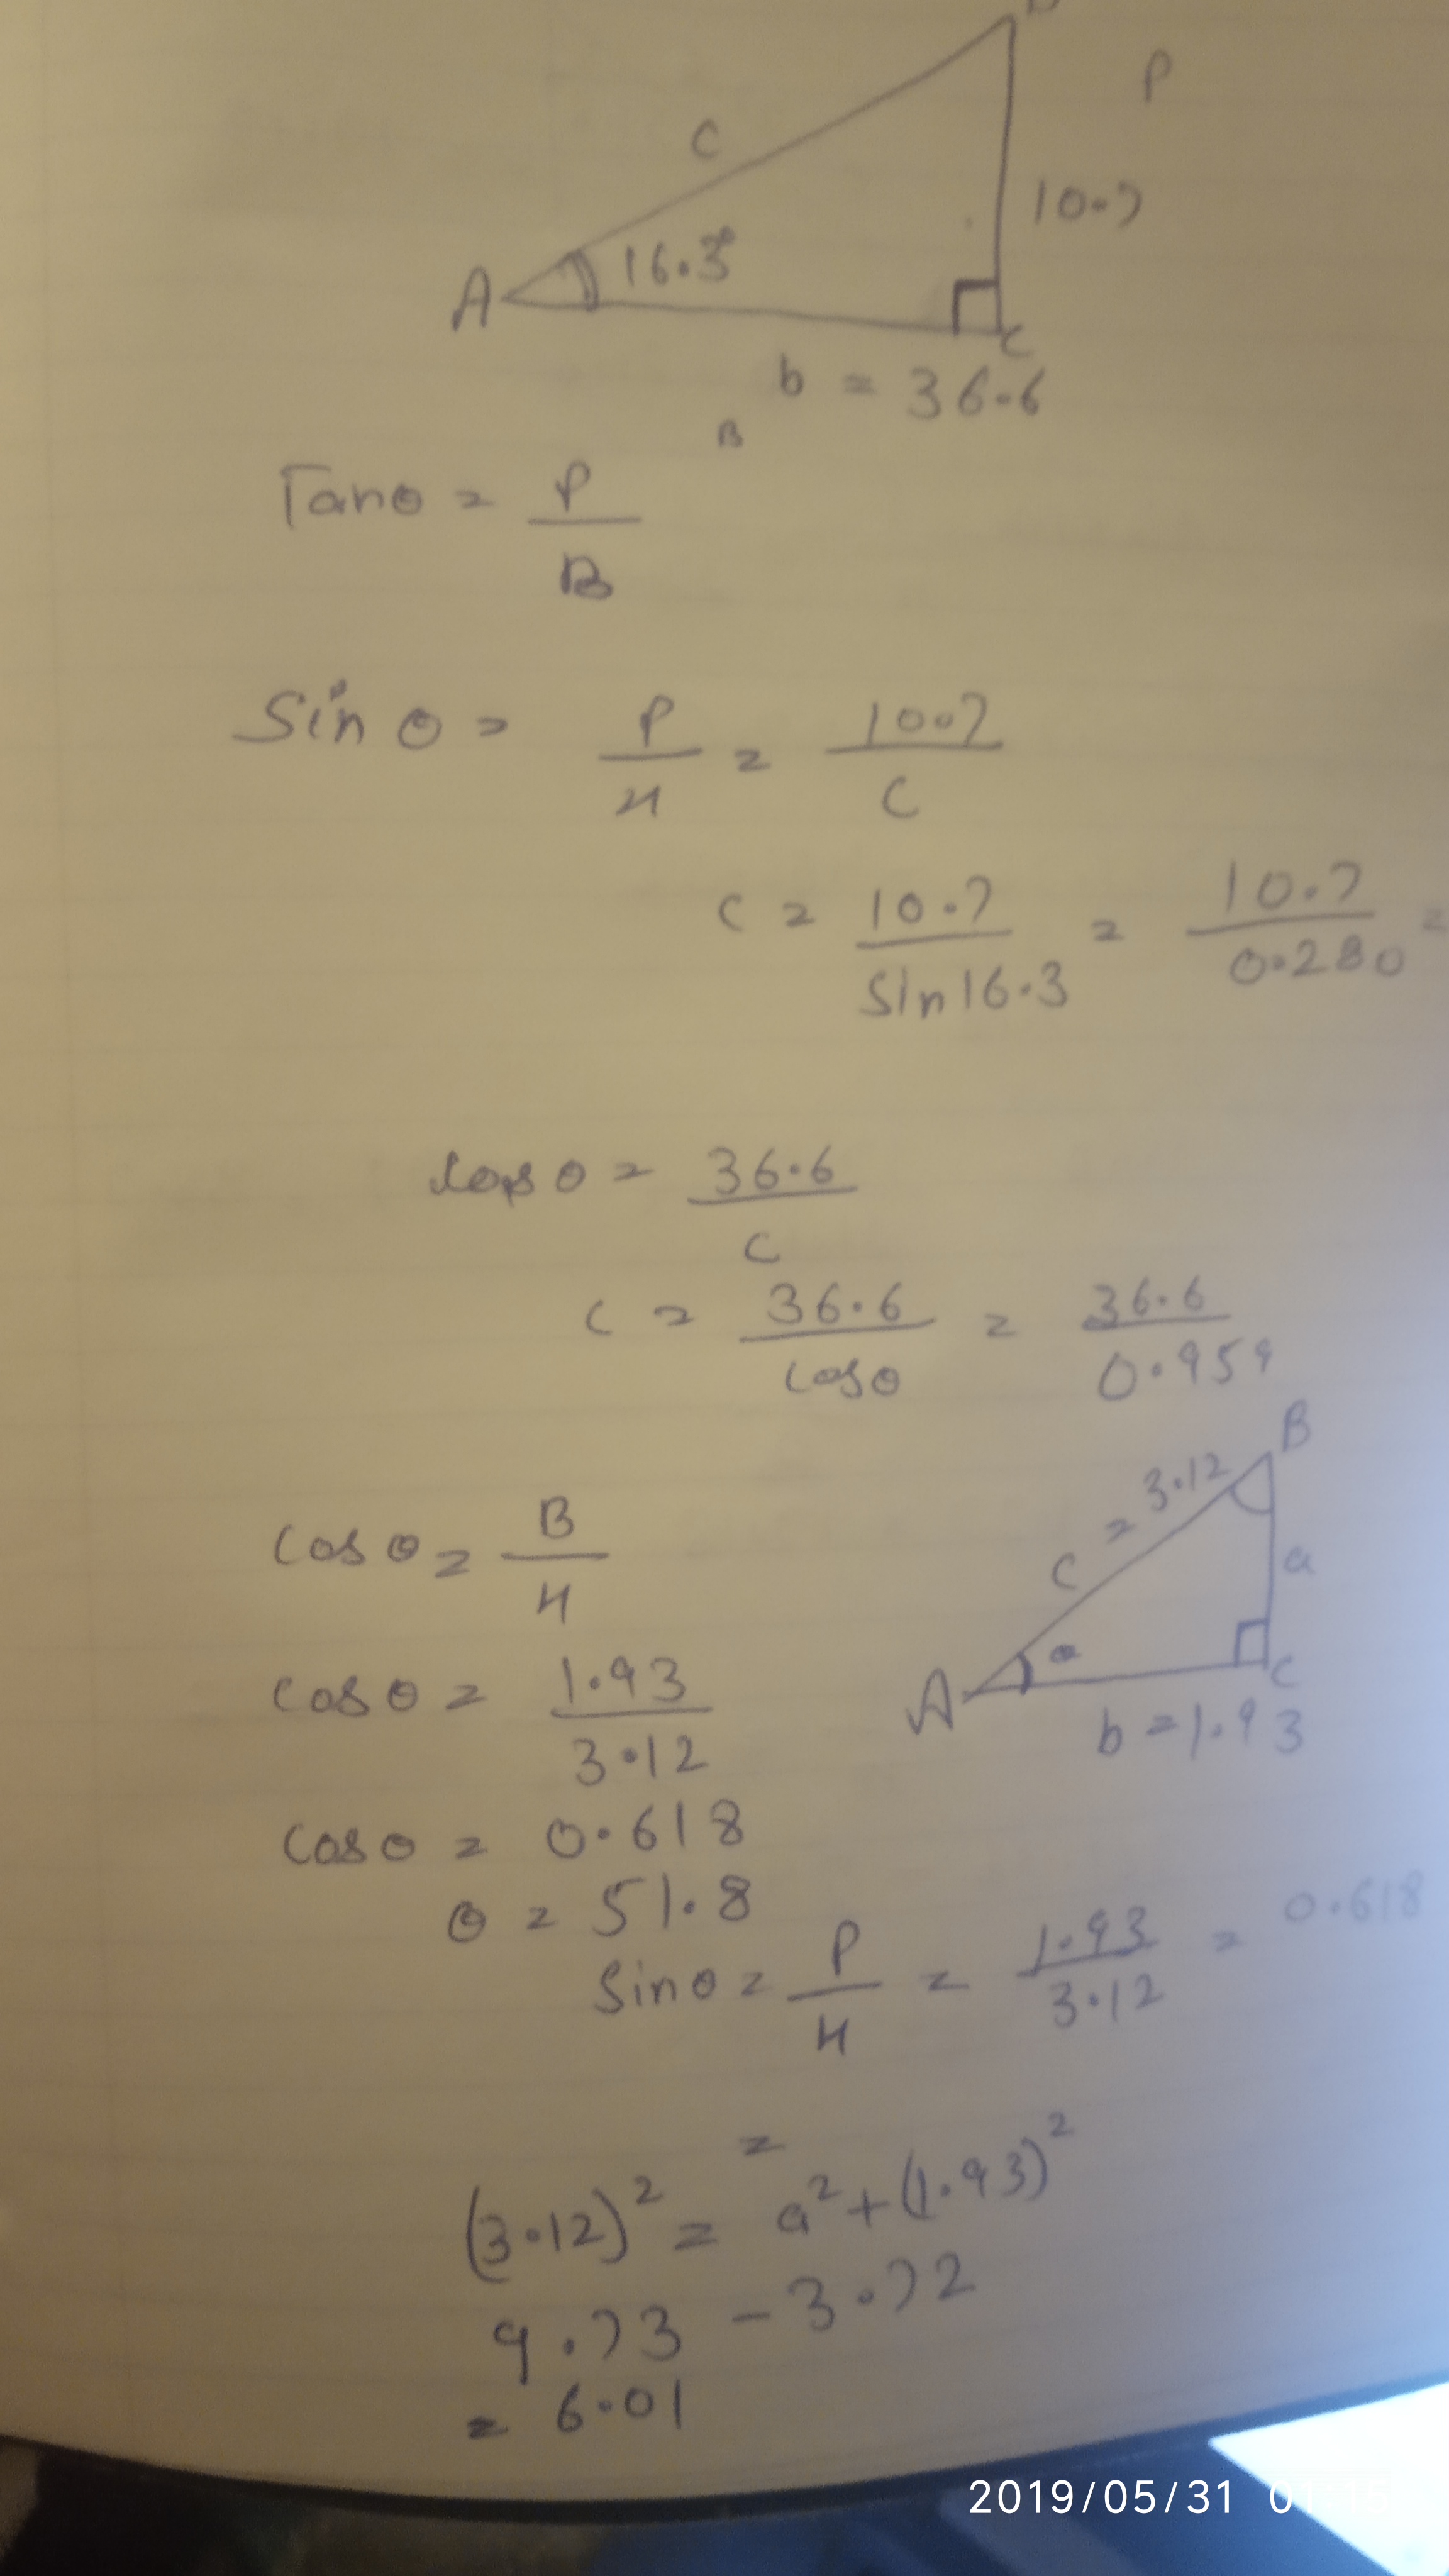 P
C
10.7
A 16.3°
C
b = 36.6
B
Tanθ = P
B
Sin θ = P = 10.7
H C
C = 10.7 = 10.7 =
Sin 16.3 0.280
Cos θ = 36.6
C
C = 36.6 = 36.6
Cosθ 0.959
B
C = 3.12
a
A θ C
b = 1.93
Cos θ = B
H
Cos θ = 1.93
3.12
Cos θ = 0.618
θ = 51.8
Sin θ = P = 1.93 = 0.618
H 3.12
=
(3.12)² = a² + (1.93)²
9.73 - 3.72
= 6.01
2019/05/31